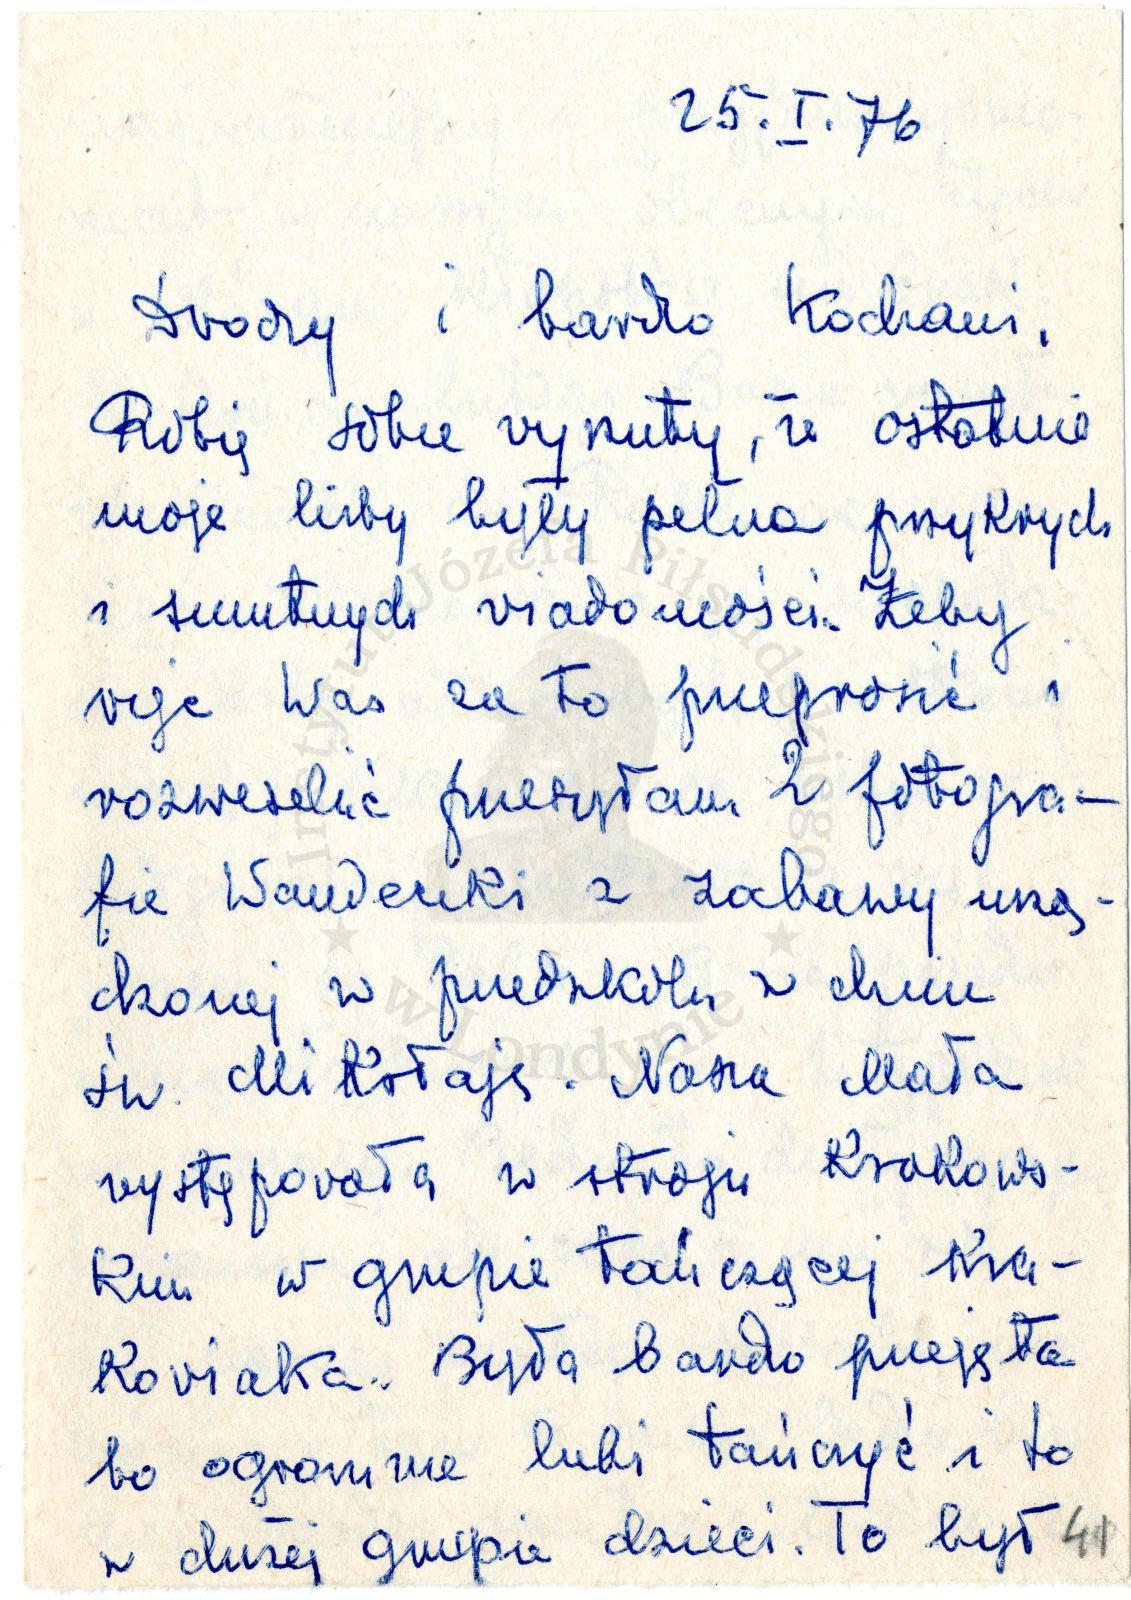 25.I.76
Drodzy i bardzo Kochani.
Robię sobie wyrzuty, że ostatnie
moje listy były pełne przykrych
i smutnych wiadomości. Żeby
więc Was za to przeprosić i
rozweselić przesyłam 2 fotogra-
fie Wandeczki z zabawy urzą-
dzonej w przedszkolu w dniu
św. Mikołaja. Nasza Mała
występowała w stroju Krakows-
kim w grupie tańczącej Kra-
kowiaka. Była bardzo przejęta
bo ogromnie lubi tańczyć i to
w dużej grupie dzieci. To był
41
Instytut Józefa Piłsudskiego
w Londynie